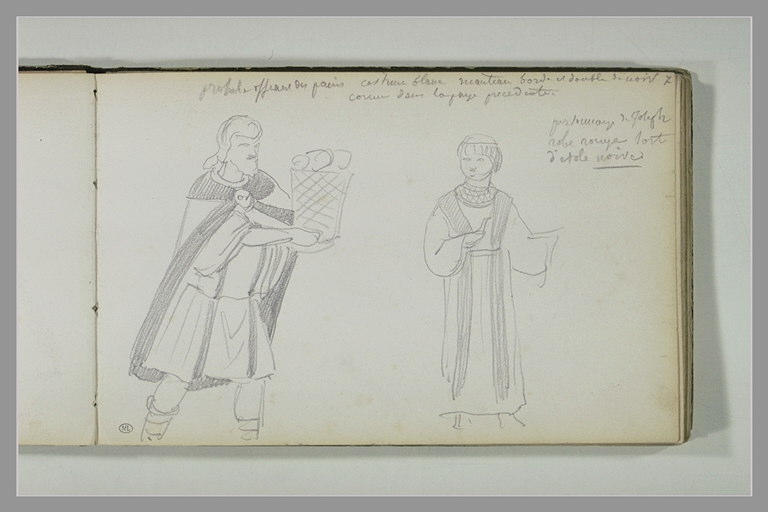 prophete offrant des pains costume blanc manteau bordé et doublé de noir 7
comme dans la page precedente
personnage de Joseph
robe rouge
d'etole noire